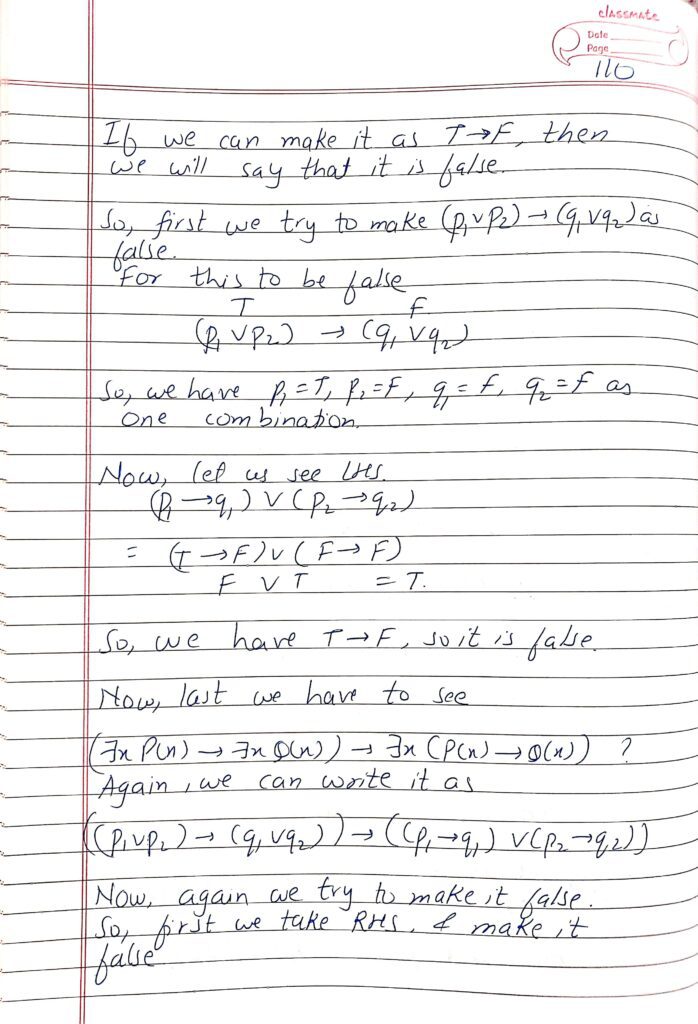 classmate
Date
Page
110
If we can make it as T→F, then
we will say that it is false.
So, first we try to make (p₁∨p₂) → (q₁∨q₂) as
false.
For this to be false
T F
(p₁∨p₂) → (q₁∨q₂)
So, we have p₁=T, p₂=F, q₁=F, q₂=F as
one combination.
Now, let us see LHS.
(p₁→q₁) ∨ (p₂→q₂)
= (T→F) ∨ (F→F)
F ∨ T = T.
So, we have T→F, so it is false.
Now, last we have to see
(∃x P(x) → ∃x Q(x)) → ∃x (P(x) → Q(x)) ?
Again, we can write it as
((p₁∨p₂) → (q₁∨q₂)) → ((p₁→q₁) ∨ (p₂→q₂))
Now, again we try to make it false.
So, first we take RHS, & make it
false